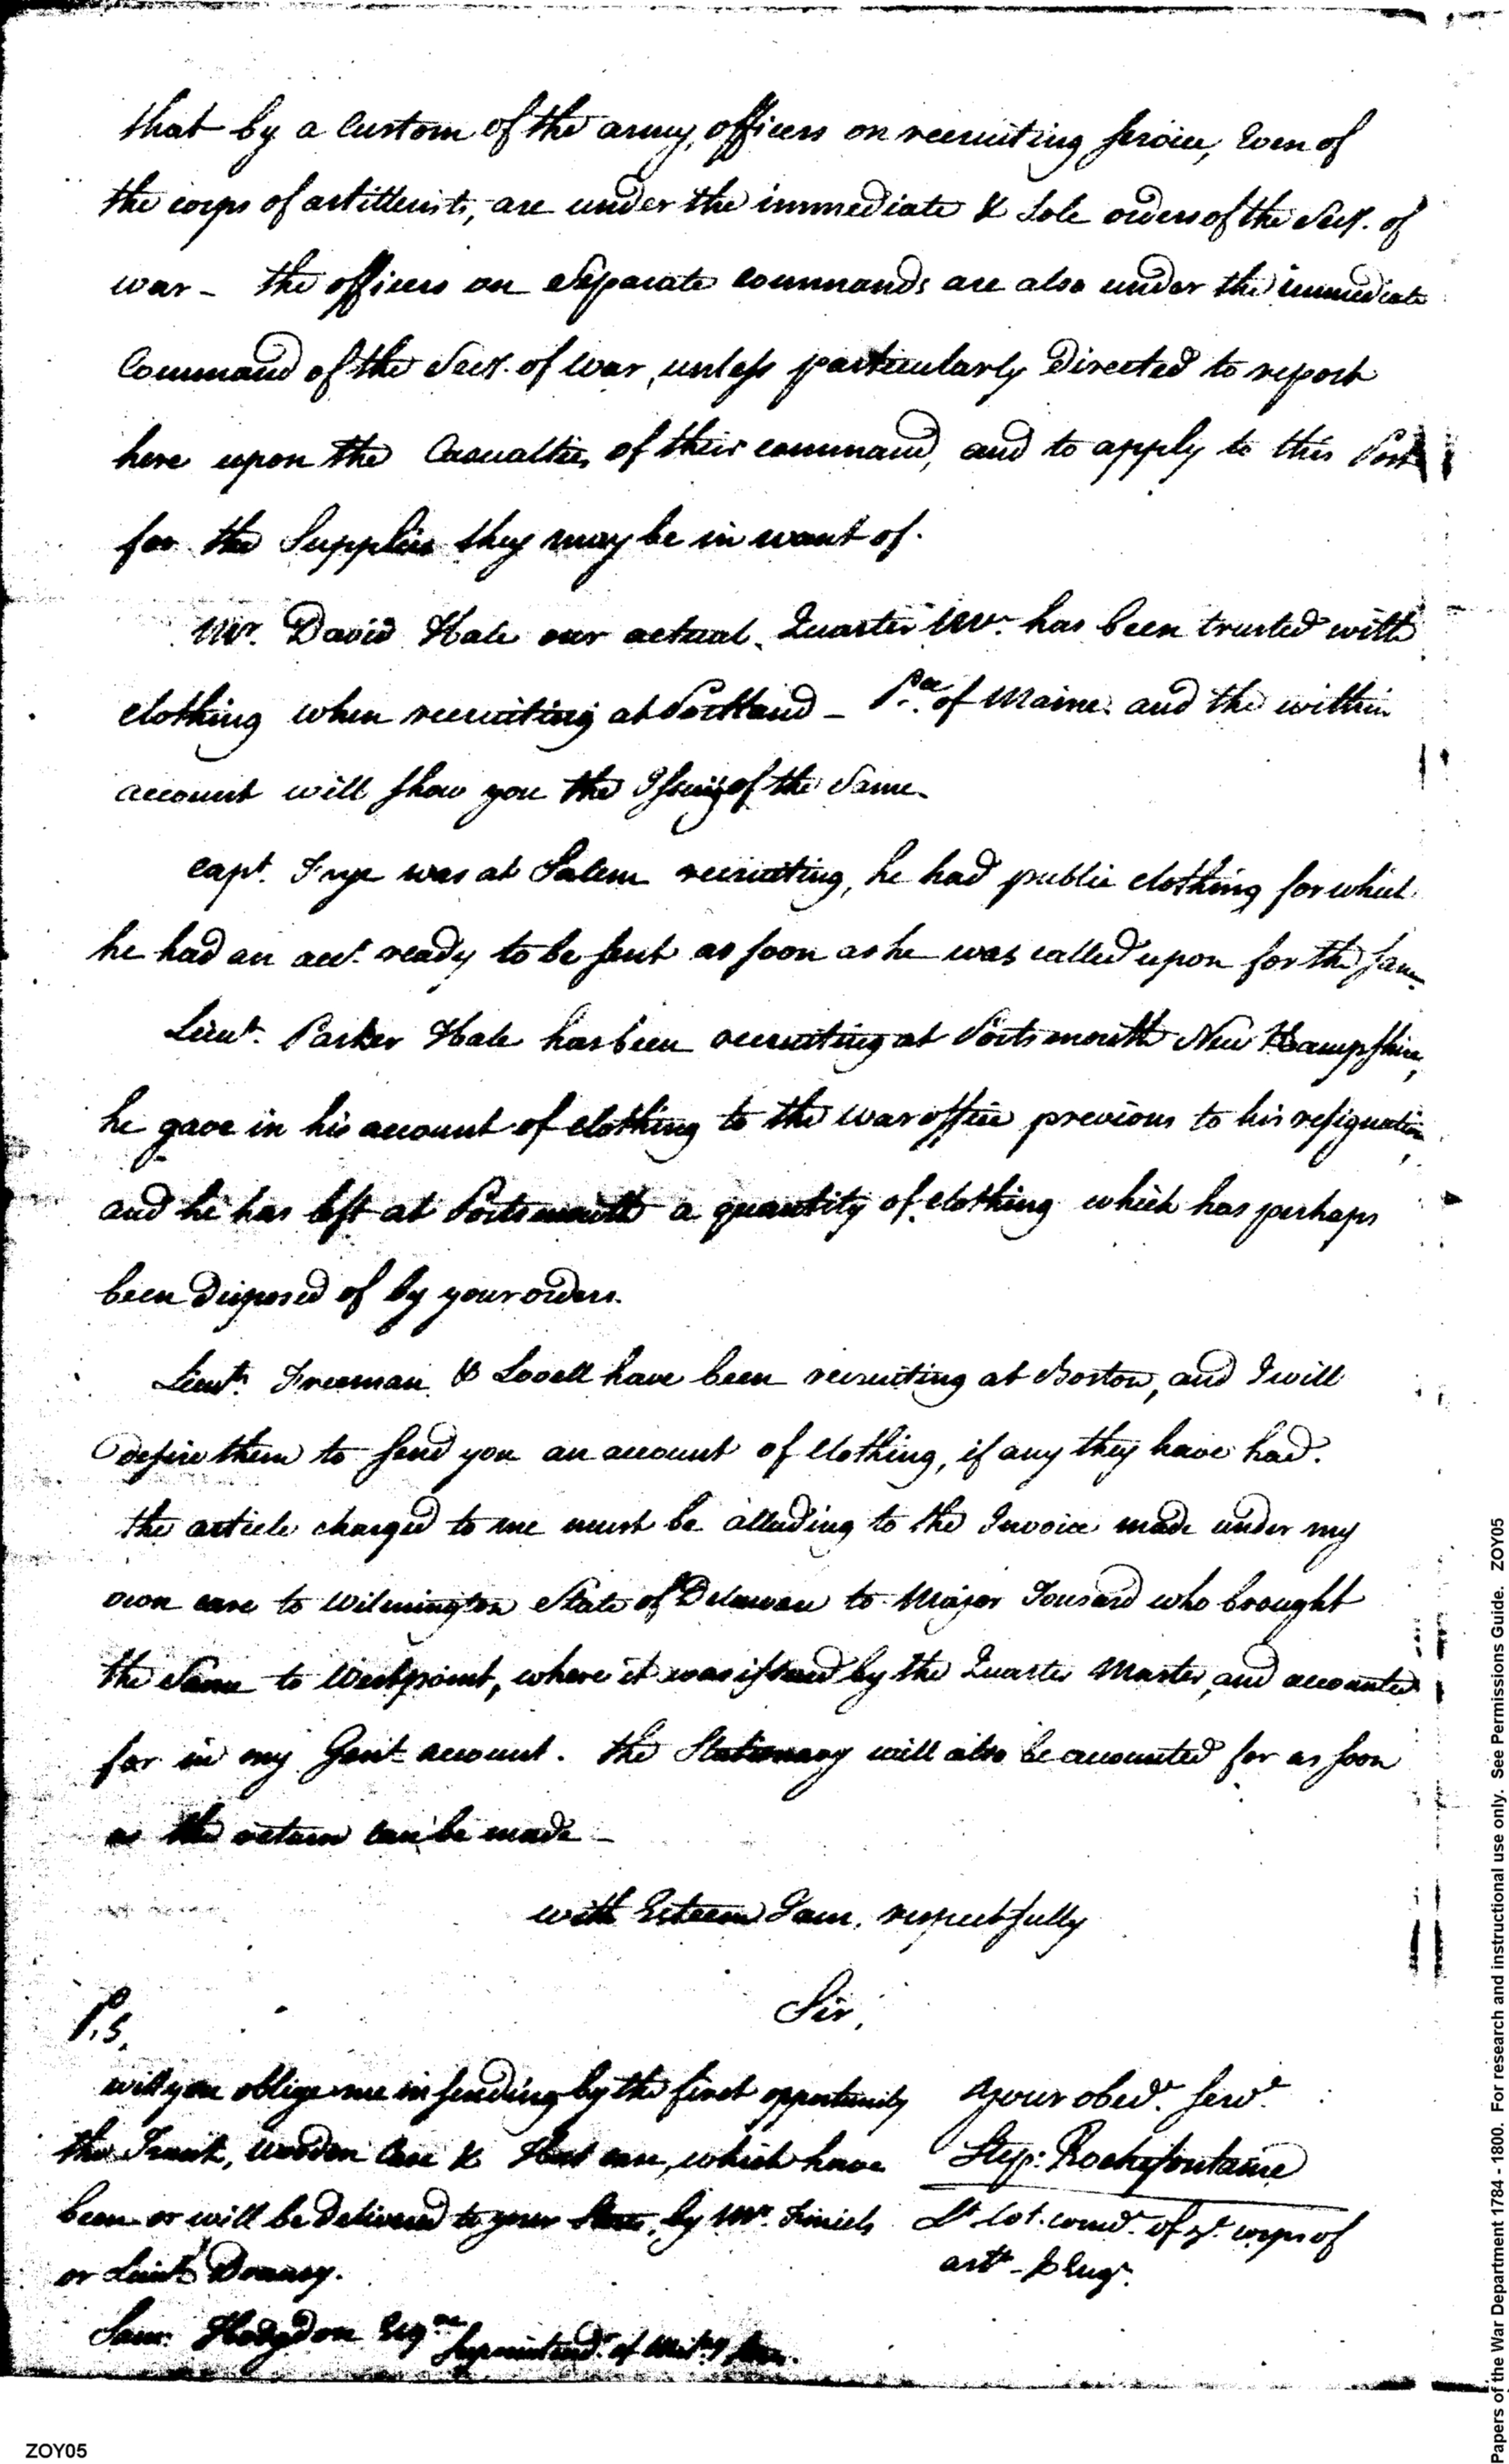 that by a Custom of the army, officers on recruiting service, Even of
the corps of artillerists, are under the immediate & Sole orders of the Secy. of
war - the officers on Separate Commands are also under the immediate
Command of the Secy. of war, unless particularly Directed to report
here upon the Casualties of their command, and to apply to this Post
for the Supplies they may be in want of.
Mr. David Hale our actual Quarter Mr. has been trusted with
clothing when recruiting at Portland - Pce. of Maine. and the within
account will show you the Issuing of the Same.
Capt. Frye was at Salem recruiting, he had public clothing for which
he had an acct. ready to be sent as soon as he was called upon for the same
Lieut. Parker Hale has been recruiting at Portsmouth New Hampshire,
he gave in his account of clothing to the war office previous to his resignation,
and he has left at Portsmouth a quantity of clothing which has perhaps
been Disposed of by your orders.
Lieuts. Freeman & Lovell have been recruiting at Boston, and I will
Desire them to send you an account of clothing, if any they have had.
the article charged to me must be alluding to the Invoice made under my
own care to Wilmington State of Delaware to Major Tousard who brought
the Same to Westpoint, where it was issued by the Quarter Master, and accounted
for in my Genl. account. the Stationary will also be accounted for as soon
as the return can be made -
with Esteem I am, respectfully
Sir,
P.S.
will you oblige me in sending by the first opportunity
the Trunk, wooden Case & Hat case, which have
been or will be Delivered to your Store, by Mr. Finiels
or Lieut.
your obed. serv.
Step: Rochefontaine
Lt. Col. comdt. of ye. corps of
artts. & Engrs.
Saml. Hodgdon Esqre. Superintendt. of Military Stores.
Papers of the War Department 1784 - 1800. For research and instructional use only. See Permissions Guide. ZOY05
ZOY05